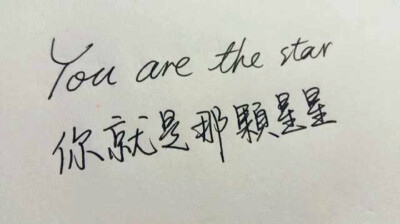 You are the star
你就是那顆星星